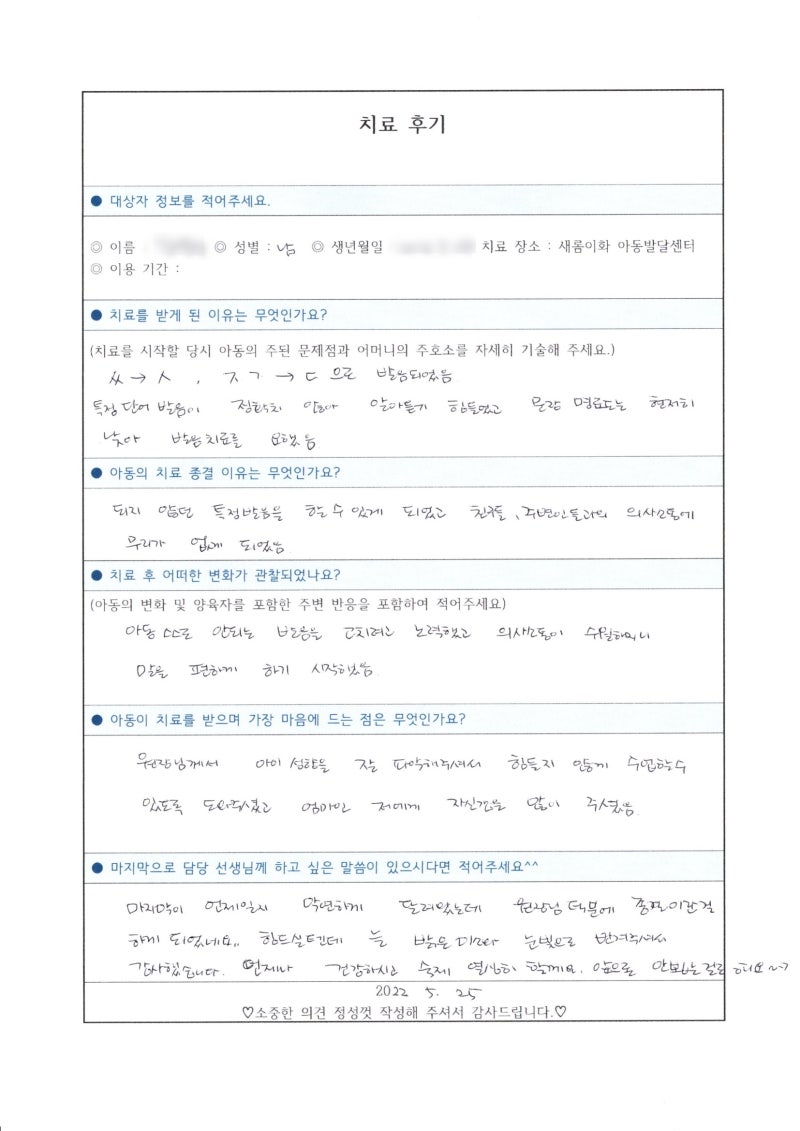 치료 후기
● 대상자 정보를 적어주세요.
◎ 이름 ◎ 성별 : 남 ◎ 생년월일 치료 장소 : 새롬이화 아동발달센터
◎ 이용 기간 :
● 치료를 받게 된 이유는 무엇인가요?
(치료를 시작할 당시 아동의 주된 문제점과 어머니의 주호소를 자세히 기술해 주세요.)
ㅆ → ㅅ , ㅈ ㄱ → ㄷ 으로 발음되었음
특정 단어 발음이 정확치 않아 알아듣기 힘들었고 문장 명료도는 현저히
낮아 발음치료를 요했음
● 아동의 치료 종결 이유는 무엇인가요?
되지 않던 특정발음을 할 수 있게 되었고 친구들, 주변인들과의 의사소통에
무리가 없게 되었음.
● 치료 후 어떠한 변화가 관찰되었나요?
(아동의 변화 및 양육자를 포함한 주변 반응을 포함하여 적어주세요)
아동 스스로 안되는 발음을 고치려고 노력했고 의사소통이 수월하니
말을 편하게 하기 시작했음.
● 아동이 치료를 받으며 가장 마음에 드는 점은 무엇인가요?
원장님께서 아이 성향을 잘 파악해주셔서 힘들지 않게 수업할수
있도록 도와주셨고 엄마인 저에게 자신감을 많이 주셨음.
● 마지막으로 담당 선생님께 하고 싶은 말씀이 있으시다면 적어주세요^^
마지막이 언제일지 막연하게 달려왔는데 원장님 덕분에 종결이란걸
하게 되었네요.. 힘드실텐데 늘 밝은 미소와 눈빛으로 반겨주셔서
감사했습니다. 언제나 건강하시고 숙제 열심히 할께요. 앞으로 안보는걸로 해요~?
2022 5. 25
♡소중한 의견 정성껏 작성해 주셔서 감사드립니다.♡